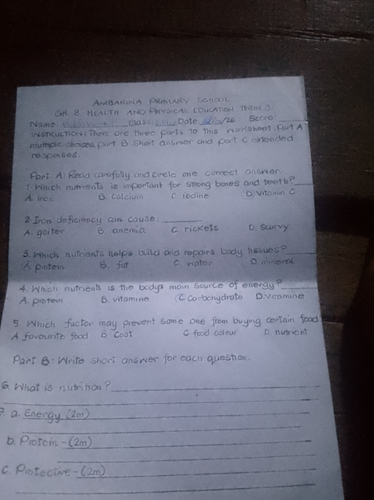 AMBARINA PRIMARY SCHOOL
GR. 8 HEALTH AND PHYSICAL EDUCATION TERM
Name Date /26 Score:
INSTRUCTION: There are three parts to this worksheet. Part A
multiple choices, part B Short answer and part C extended
responses.
Part A: Read carefully and circle one correct answer.
1. Which nutrients is important for strong bones and teeth?
A. iron B. Calcium C. iodine D. Vitamin C
2. Iron deficiency can cause:
A. goiter B. anemia C. rickets D. Scurvy
3. Which nutrients helps build and repairs body tissues?
A. protein B. fat C. water D. mineral
4. Which nutrients is the bodys main source of energy?
A. protein B. vitamine C. Carbohydrate D. vitamine
5. Which factor may prevent some one from buying certain food
A. favourite food B. Cost C. food colour D. nutrient
Part B: Write short answer for each question.
6. What is nutrition?
7. a. Energy (2m)
b. Protein - (2m)
c. Protective - (2m)